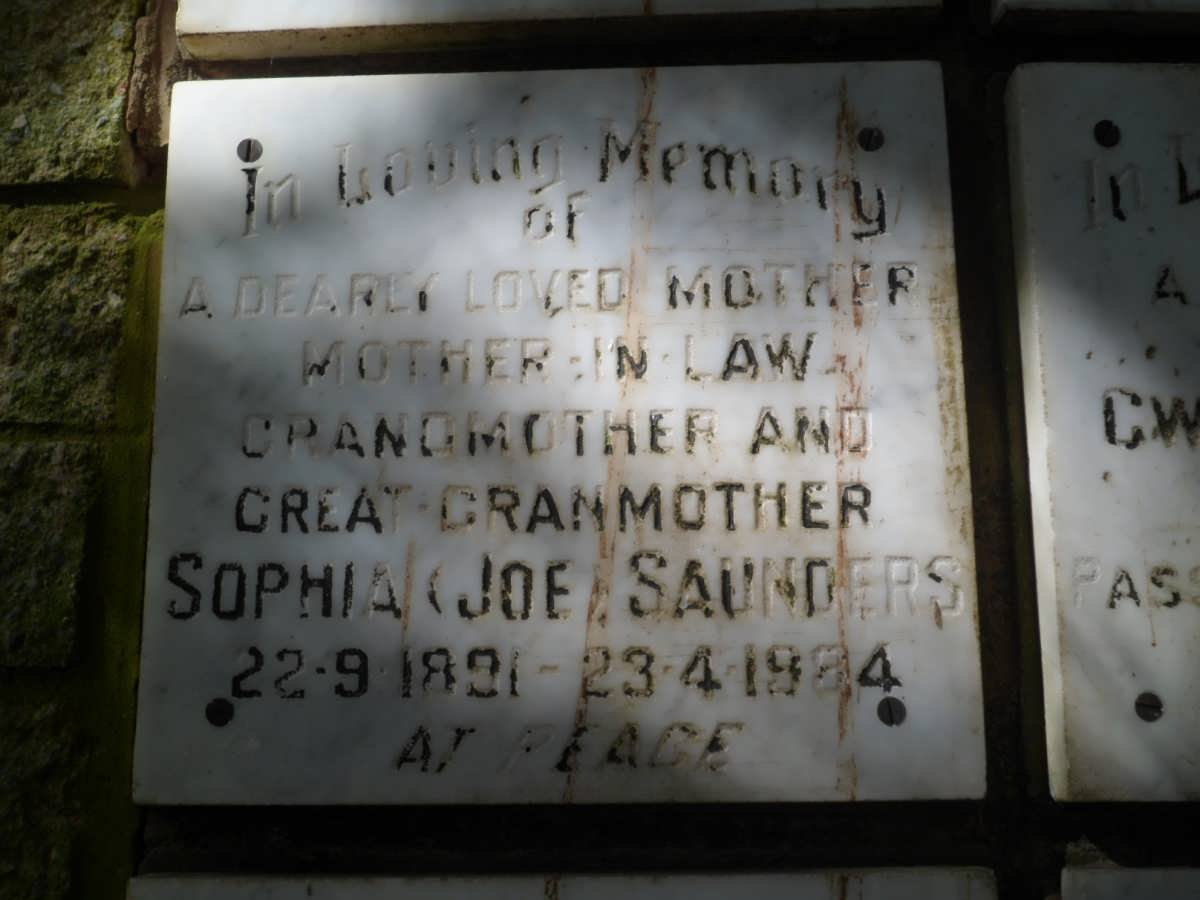 In Loving Memory
of
A DEARLY LOVED MOTHER
MOTHER-IN-LAW
GRANDMOTHER AND
GREAT-GRANMOTHER
SOPHIA (JOE SAUNDERS
22-9-1891-23-4-1984
AT PEACE
In
A
PASS